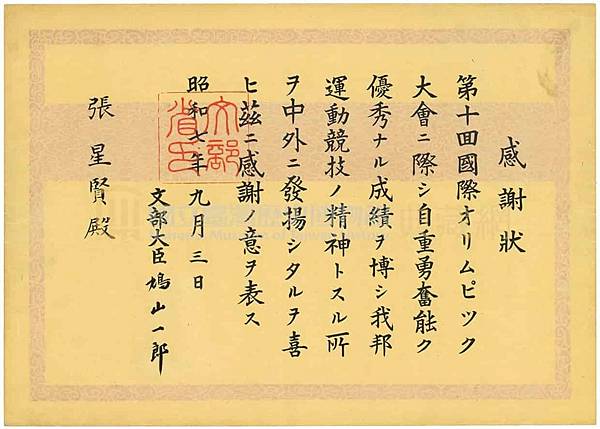 感謝狀
第十回國際オリムピツク
大會ニ際シ自重勇奮能ク
優秀ナル成績ヲ博シ我邦
運動競技ノ精神トスル所
ヲ中外ニ發揚シタルヲ喜
ヒ茲ニ感謝ノ意ヲ表ス
昭和七年九月三日
文部大臣鳩山一郎
張星賢殿
文部省印